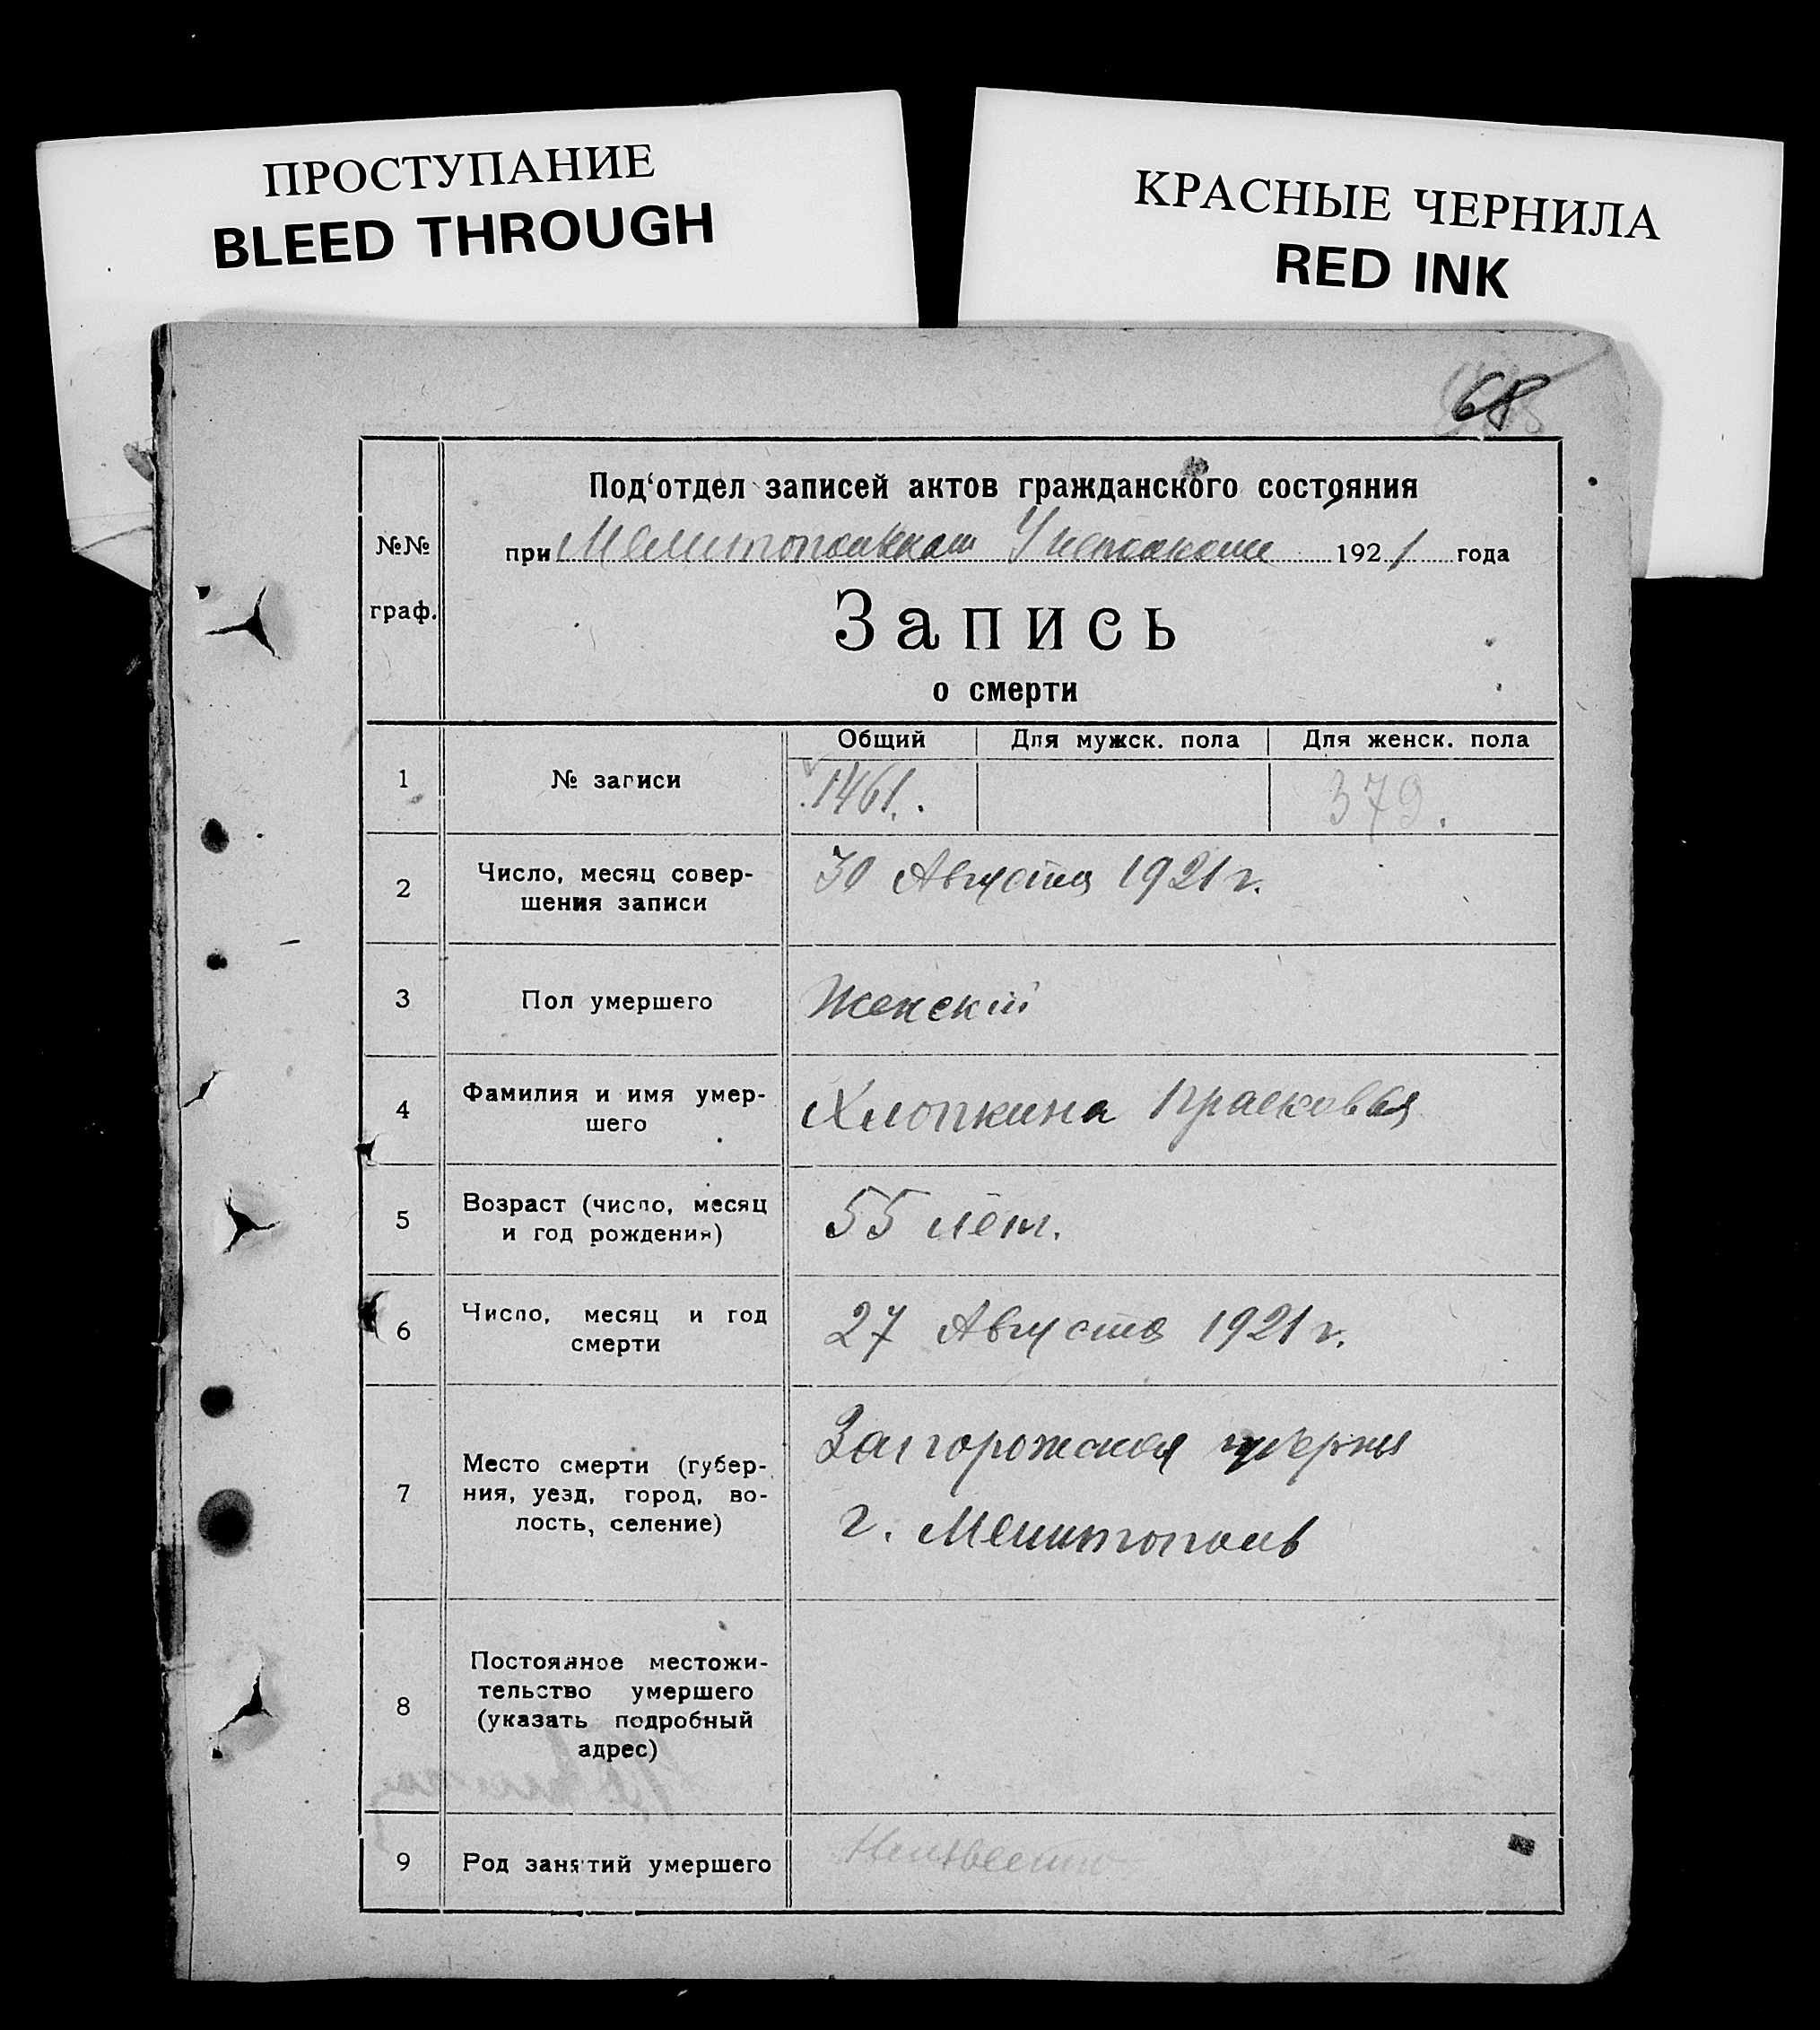 ПРОСТУПАНИЕ
BLEED THROUGH
КРАСНЫЕ ЧЕРНИЛА
RED INK
68
№№
граф.
Под‘отдел записей актов гражданского состояния
при Мелитопольском 1921 года
Запись
о смерти
Общий Для мужск. пола Для женск. пола
1 № записи 1461. 379.
2 Число, месяц совер-
шения записи
30 Августа 1921 г.
3 Пол умершего Женский
4 Фамилия и имя умер-
шего
Хлопкина Прасковья
5 Возраст (число, месяц
и год рождения)
55 лет.
6 Число, месяц и год
смерти
27 Августа 1921 г.
7 Место смерти (губер-
ния, уезд, город, во-
лость, селение)
Запорожская губерния
г. Мелитополь
8 Постоянное местожи-
тельство умершего
(указать подробный
адрес)
9 Род занятий умершего Неизвестно